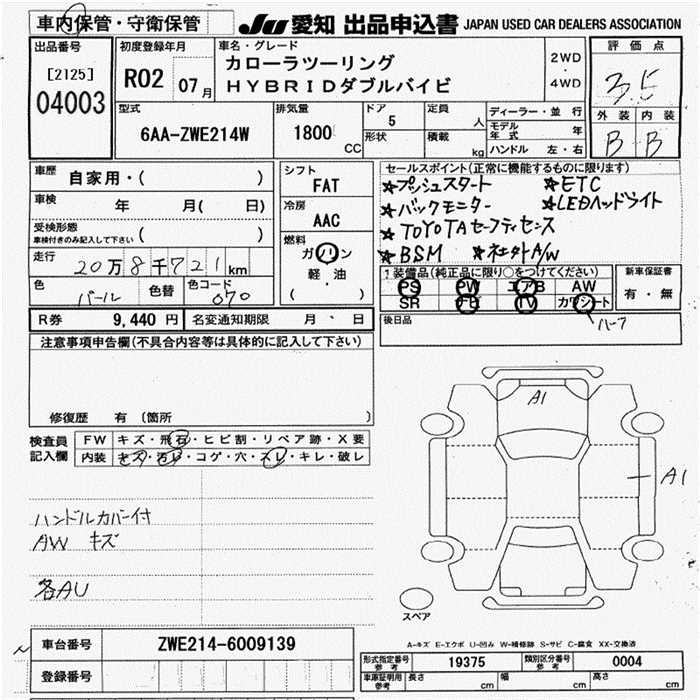 車内保管・守衛保管 JU 愛知 出品申込書 JAPAN USED CAR DEALERS ASSOCIATION
出品番号 [2125] 04003
初度登録年月 R02 07月
車名・グレード カローラツーリング HYBRIDダブルバイビ
2WD・4WD
評価点 3.5
外装 内装
B B
型式 6AA-ZWE214W
排気量 1800 CC
ドア 5
定員 人
形状
積載 kg
ディーラー・並行
モデル年式 年
ハンドル 左・右
車歴 自家用・( )
車検 年 月( 日)
受検形態 車検付きのみ記入して下さい ( )
走行 20万8千721km
色 パール 色替 色コード 070
シフト FAT
冷房 AAC
燃料 ガソリン 軽油 ( )
セールスポイント(正常に機能するものに限ります)
★プッシュスタート ★ETC
★バックモニター ★LEDヘッドライト
★TOYOTAセーフティセンス
★BSM ★社外A/W
1装備品(純正品に限り○をつけてください)
PS PW エアB AW
SR ナビ TV カワシート
ハーフ
新車保証書 有・無
R券 9,440円 名変通知期限 月 日
後日品
注意事項申告欄(不具合内容等は具体的に記入して下さい)
修復歴 有(箇所 )
検査員記入欄
FW キズ・飛石・ヒビ割・リペア跡・X要
内装 キズ・汚レ・コゲ・穴・スレ・キレ・破レ
ハンドルカバー付
AW キズ
各AU
A1
A1
スペア
A-キズ E-エクボ U-凹み W-補修跡 S-サビ C-腐食 XX-交換済
車台番号 ZWE214-6009139
登録番号
形式指定番号 参考 19375 類別区分番号 参考 0004
車庫証明用 参考 長さ cm 幅 cm 高さ cm